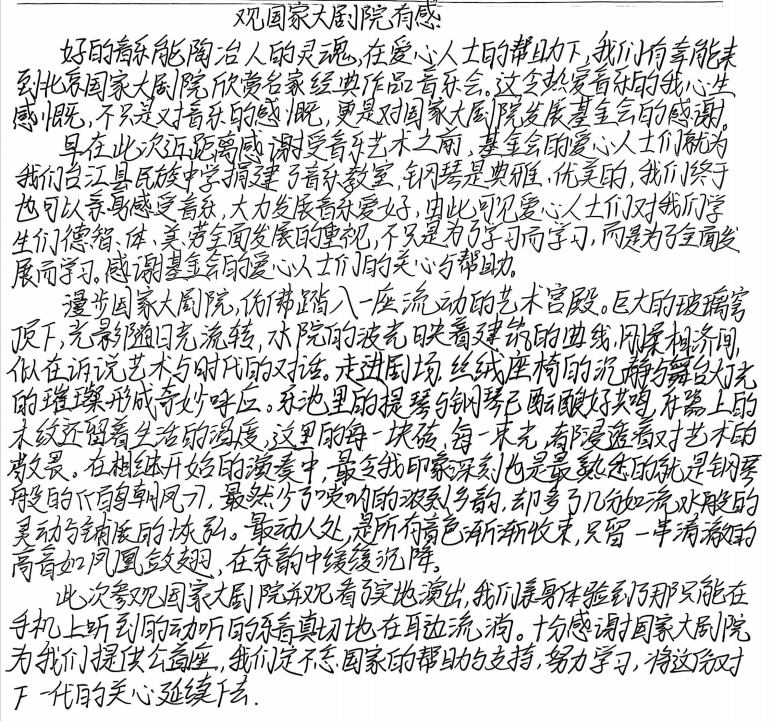 观国家大剧院有感
好的音乐能陶冶人的灵魂,在爱心人士的帮助下,我们有幸能来
到北京国家大剧院欣赏名家经典作品音乐会。这令热爱音乐的我心生
感慨,不只是对音乐的感慨,更是对国家大剧院发展基金会的感谢。
早在此次近距离感谢受音乐艺术之前,基金会的爱心人士们就为
我们台江县民族中学搭建了音乐教室,钢琴是典雅、优美的,我们终于
也可以亲身感受音乐,大力发展音乐爱好,由此可见爱心人士们对我们学
生们德、智、体、美、劳全面发展的重视,不只是为了学习而学习,而是为了全面发
展而学习。感谢基金会的爱心人士们的关心与帮助。
漫步国家大剧院,仿佛踏入一座流动的艺术宫殿。巨大的玻璃穹
顶下,光影随日光流转,水院的波光映着建筑的曲线,刚柔相济间,
似在诉说艺术与时代的对话。走进剧场,丝绒座椅的沉静与舞台灯光
的璀璨形成奇妙呼应。乐池里的提琴与钢琴已酝酿好共鸣,乐器上的
木纹还留着生活的温度,这里的每一块砖,每一束光,都浸透着对艺术的
敬畏。在相继开始的演奏中,最令我印象深刻也是最熟悉的就是钢琴
般的《百鸟朝凤》,虽然少了唢呐的浓烈乡韵,却多了几分如流水般的
灵动与铺展的恢弘。最动人处,是所有音色渐渐收束,只留一串清澈的
高音如凤凰敛翅,在余韵中缓缓沉降。
此次参观国家大剧院并观看了实地演出,我们亲身体验到了那只能在
手机上听到的动听的乐音真切地在耳边流淌。十分感谢国家大剧院
为我们提供公益座,我们定不忘国家的帮助与支持,努力学习,将这份对
下一代的关心延续下去.